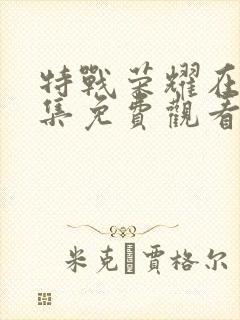 特戰榮耀在
集免費觀看
米克 賈格尔